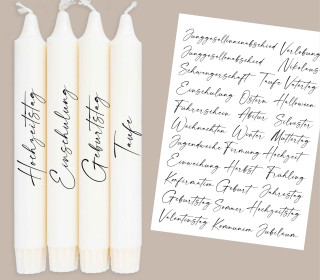 Hochzeitstag
Einschulung
Geburtstag
Taufe
Junggesellinnenabschied Verlobung
Junggesellenabschied Nikolaus
Schwangerschaft Taufe Vatertag
Einschulung Ostern Halloween
Führerschein Abitur Silvester
Weihnachten Winter Muttertag
Jugendweihe Firmung Hochzeit
Einweihung Herbst Frühling
Konfirmation Geburt Jahrestag
Geburtstag Sommer Hochzeitstag
Valentinstag Kommunion Jubiläum